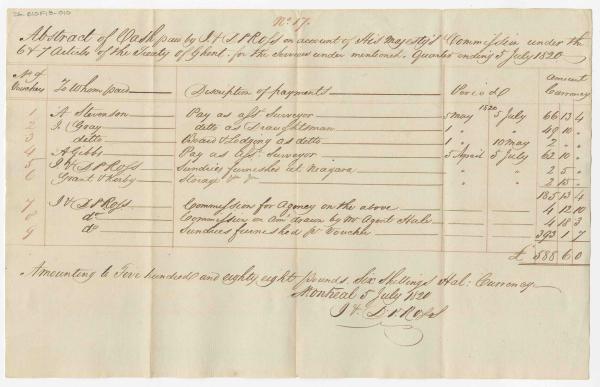 No 17.
Abstract of Cash paid by J & D P Ross on account of His Majesty's Commission under the
6 & 7 Articles of the Treaty of Ghent for the services under mentioned. Quarter ending 5 July 1820
No of Vouchers To Whom paid Description of payments Period Amount Currency
1820
1 A Stevenson Pay as asst Surveyor 5 May 5 July 66 13 4
2 J. Gray ditto as Draughtsman 1 " " 49 10 "
3 ditto Board & Lodging as ditto 1 " 10 May 2 " "
4 A Gibbs Pay as asst Surveyor 5 April 5 July 62 10 "
5 J & D P Ross Sundries furnished at Niagara " " 2 5 "
6 Grant & Kerby Storage " " 2 15 "
185 13 4
7 J & D P Ross Commission for Agency on the above 4 12 10
8 do Commission on Amt drawn by Mr Agent Hale 4 18 3
9 do Sundries furnished pr Voucher 393 1 7
£ 588 6 0
Amounting to Five hundred and eighty eight pounds. Six Shillings Hal: Currency
Montreal 5 July 1820
J & D P Ross